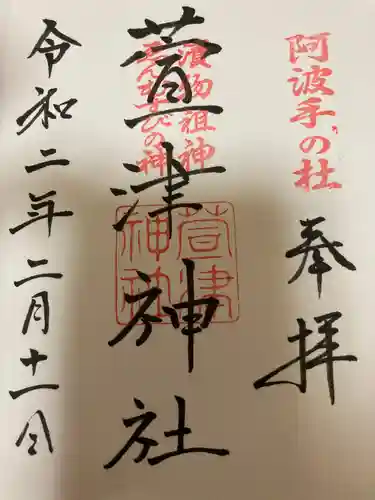 阿波手の杜
奉拝
漬物祖神
えんむすびの神
萱津神社
萱津
神社
令和二年二月十一日